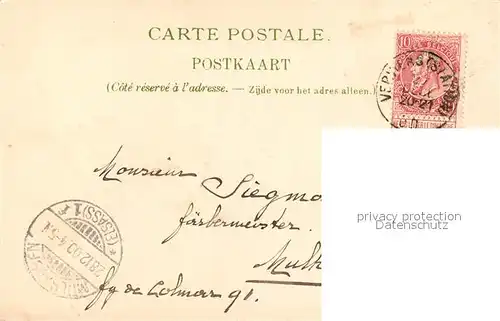 CARTE POSTALE.
POSTKAART
(Côté réservé à l'adresse. — Zijde voor het adres alleen.)
10
VERVIERS (STATION)
20-21
Monsieur Siegmo
Färbermeister
Mulh
fg de Colmar 91.
MÜLHAUSEN
(ELSASS) 1
28.12.00. 4-5
privacy protection
oldthing.de